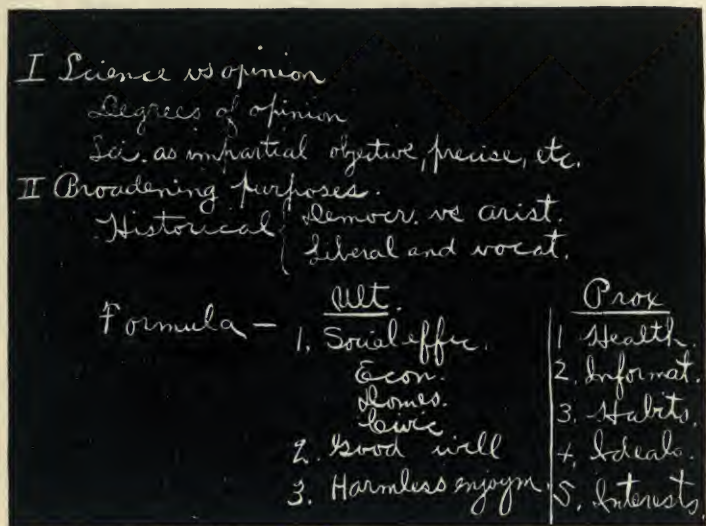 I Science vs opinion
Degrees of opinion
Sci. as impartial objective, precise, etc.
II Broadening purposes.
Historical { Democr. vs arist.
Liberal and vocat.
Formula —
Ult.
1. Social effic.
Econ.
Domes.
Civic
2. Good will
3. Harmless enjoym.
Prox
1 Health.
2. Informat.
3. Habits.
4. Ideals.
5. Interests